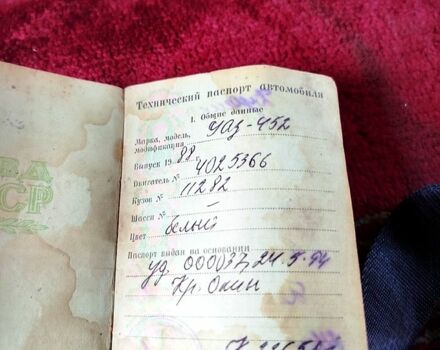 Технический паспорт автомобиля
1. Общие данные
Марка, модель, УАЗ-452
модификация
Выпуск 1988
Двигатель № 4025366
Кузов № 11282
Шасси № -
Цвет белый
Паспорт выдан на основании
уд. 000037, 24.5.94
СР